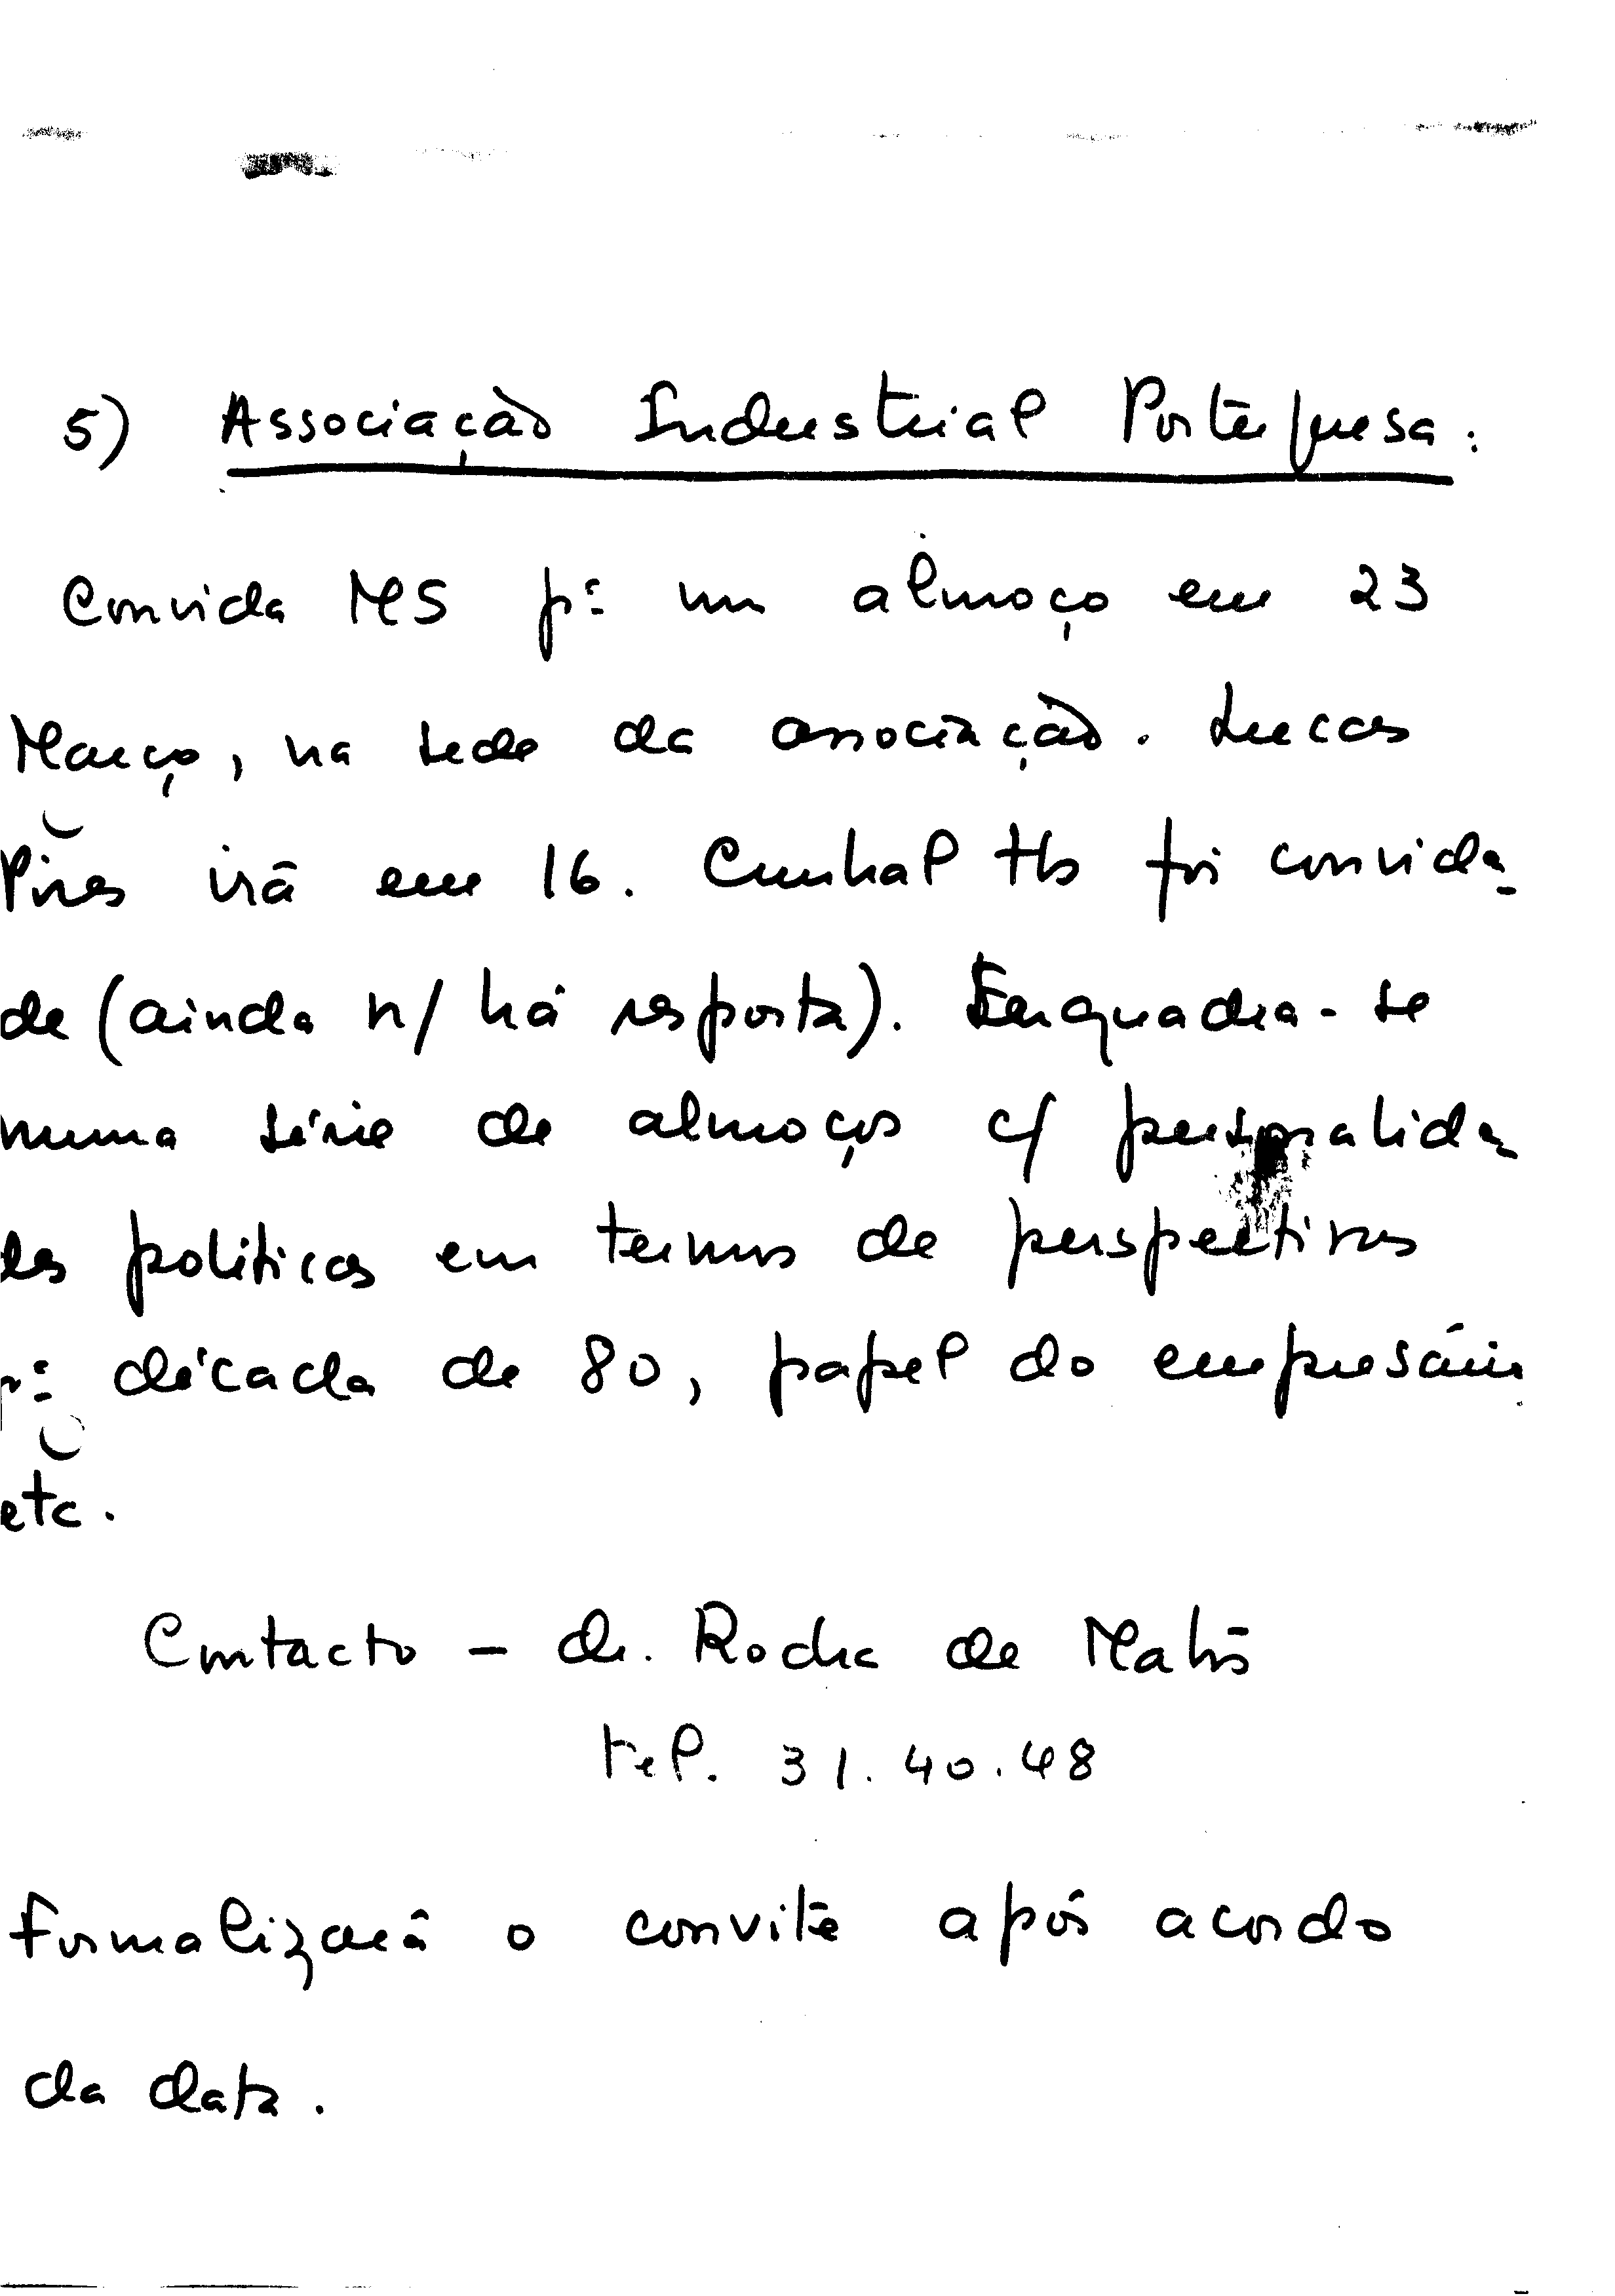 5) Associação Industrial Portuguesa:
Convida MS pª um almoço em 23
Março, na sede da associação. Lucas
Pires irá em 16. Cunhal tb foi convida-
do (ainda n/ há resposta). Enquadra-se
numa série de almoços c/ personalida-
des políticas em termos de perspectivas
pª década de 80, papel do empresário
etc.
Contacto - dr. Rocha de Matos
tel. 31.40.48
Formalizará o convite após acordo
da data.